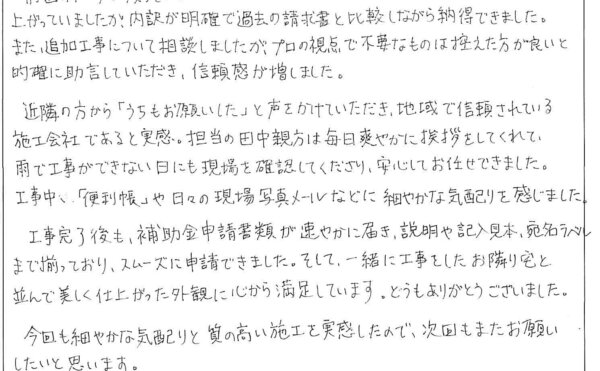 上がっていましたが、内訳が明確で過去の請求書と比較しながら納得できました。
また、追加工事について相談しましたが、プロの視点で不要なものは控えた方が良いと
的確に助言していただき、信頼感が増しました。
近隣の方から「うちもお願いした」と声をかけていただき、地域で信頼されている
施工会社であると実感。担当の田中親方は毎日爽やかに挨拶をしてくれて、
雨で工事ができない日にも現場を確認してくださり、安心してお任せできました。
工事中、「便利帳」や日々の現場写真メールなどに細やかな気配りを感じました。
工事完了後も、補助金申請書類が速やかに届き、説明や記入見本、宛名ラベル
まで揃っており、スムーズに申請できました。そして、一緒に工事をしたお隣り宅と
並んで美しく仕上がった外観に心から満足しています。どうもありがとうございました。
今回も細やかな気配りと質の高い施工を実感したので、次回もまたお願い
したいと思います。